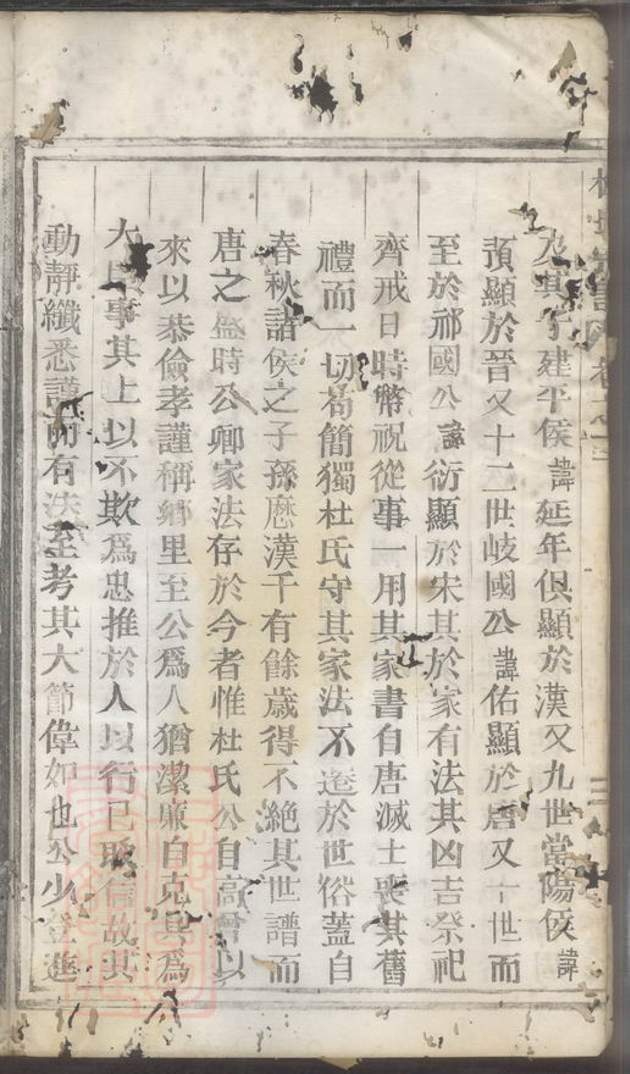 及其子建平侯諱延年俱顯於漢又九世當陽侯諱
預顯於晉又十二世岐國公諱佑顯於唐又十世而
至於祁國公諱衍顯於宋其於家有法其凶吉祭祀
齊戒日時幣祝從事一用其家書自唐滅士喪其舊
禮而一切苟簡獨杜氏守其家法不遷於世俗蓋自
春秋諸侯之子孫歷漢千有餘歲得不絕其世譜而
唐之盛時公卿家法存於今者惟杜氏公自高曾以
來以恭儉孝謹稱鄉里至公爲人猶潔廉自克其爲
大臣事其上以不欺爲忠推於人以行己取信故其
動靜纖悉謹而有法至考其大節偉如也公少登進